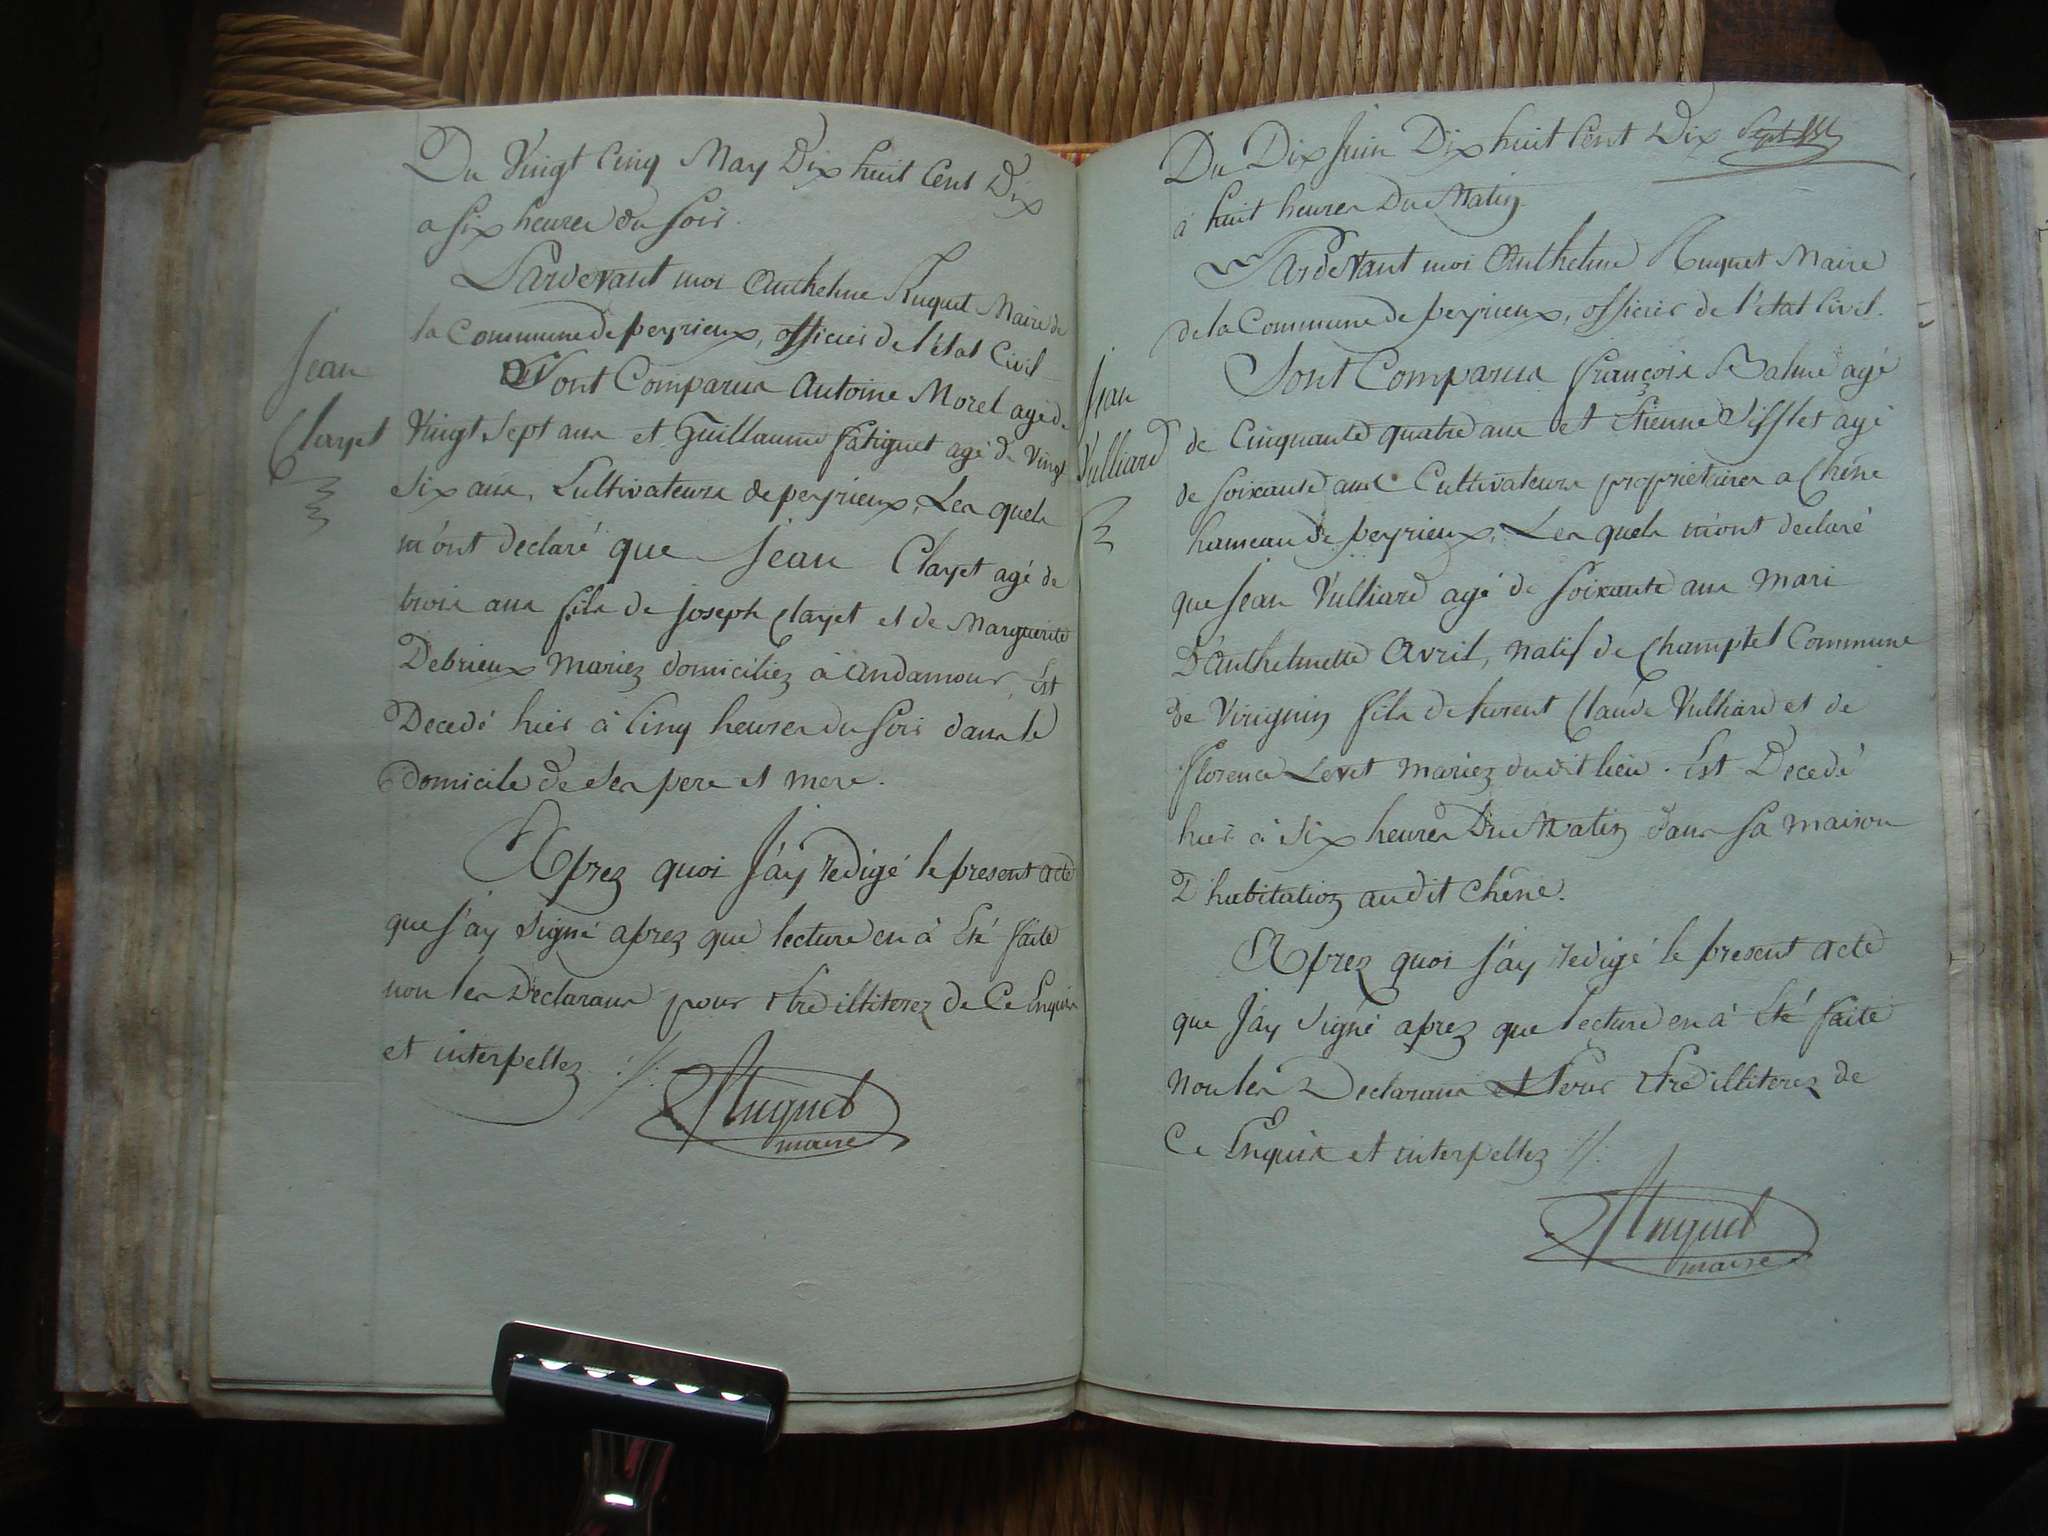 Du Vingt Cinq May Dix huit Cent Dix
a Six heures du Soir.
Pardevant moi Anthelme Huguet Maire de
la Commune de peyrieux, officier de l'état Civil
Sont Comparus Antoine Morel agé de
Vingt Sept ans et Guillaume fatiguet agé de Vingt
Six ans, Cultivateurs de peyrieux, Les quels
m'ont declaré que Jean Clayet agé de
trois ans fils de Joseph Clayet et de Marguerite
Debrieux mariez domiciliez à andamour, Est
Decedé hier à Cinq heures du Soir dans le
domicile de Ses pere et mere.
Aprez quoi J'ay redigé le present acte
que J'ay Signé aprez que lecture en à Eté faite
non les Declarans pour être illiterez de Ce Enquis
et interpellez ://:
Huguet
maire
Jean
Clayet
Du Dix Juin Dix huit Cent Dix
à huit heures Du Matin
Pardevant moi Anthelme Huguet Maire
de la Commune de peyrieux, officier de l'état Civil.
Sont Comparus françois Balme agé
de Cinquante quatre ans et Etienne Sifflet agé
de Soixante ans Cultivateurs proprietaires a Chêne
hameau de peyrieux, Les quels m'ont declaré
que Jean Vulliard agé de Soixante ans mari
D'anthelmette Avril, natif de Champtel Commune
de Virignin fils de furent Claude Vulliard et de
florence Levet mariez dudit lieu. Est Decedé
hier à Six heures Du Matin dans Sa maison
D'habitation audit Chêne.
Aprez quoi J'ay redigé le present acte
que J'ay Signé aprez que lecture en à Eté faite
non les Declarans pour être illiterez de
Ce Enquis et interpellez //.
Huguet
maire
Jean
Vulliard